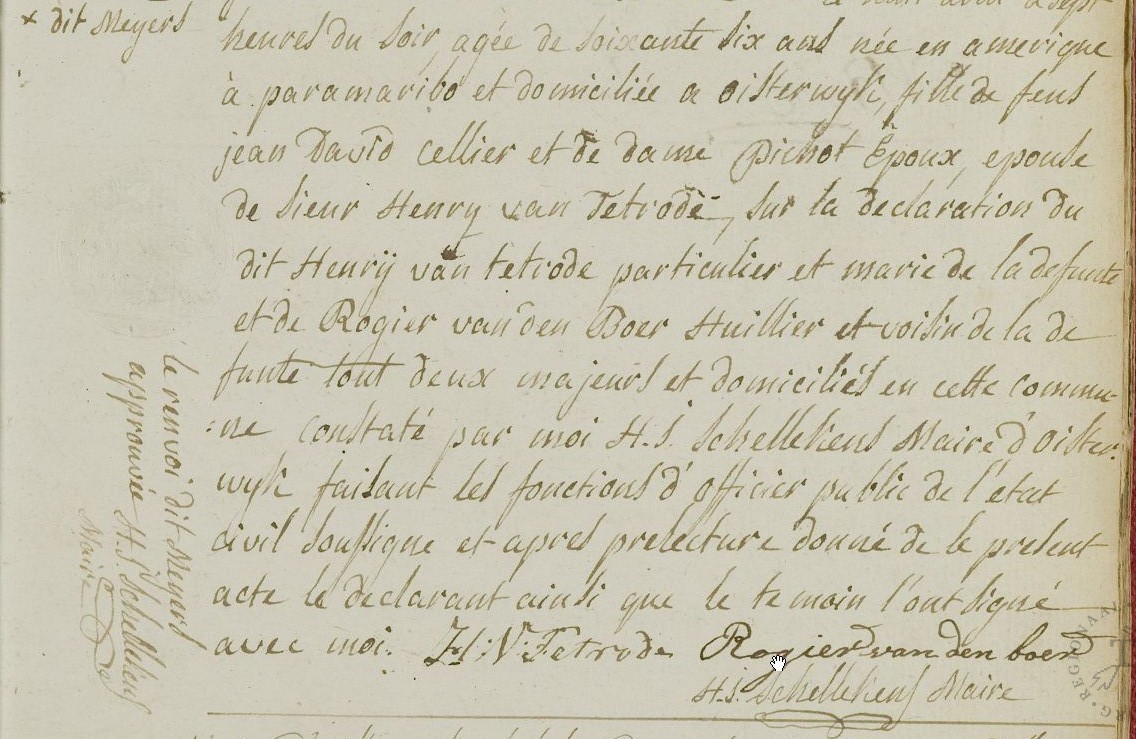 x dit Meyers
heures du soir, agée de soixante six ans née en amerique
à paramaribo et domiciliée a oisterwyk, fille de feus
jean David Cellier et de dame Pichot Epoux, epouse
de sieur Henry van Tetrode, sur la declaration du
dit Henrÿ van tetrode particulier et marie de la defunte
et de Rogier van den Boer Huillier et voisin de la de
funte tout deux majeurs et domiciliés en cette commu-
:ne constaté par moi H.S. Schellekens Maire d'Oister:
wyk faisant les fonctions d'officier public de l'etat
civil soussigne et apres prelecture donné de le present
acte le declarant ainsi que le temoin l'ont signé
avec moi. H: V: Tetrode Rogier van den boer
H.S. Schellekens Maire
le renvoi dit Meyers
approuvée H.S. Schellekens
Maire